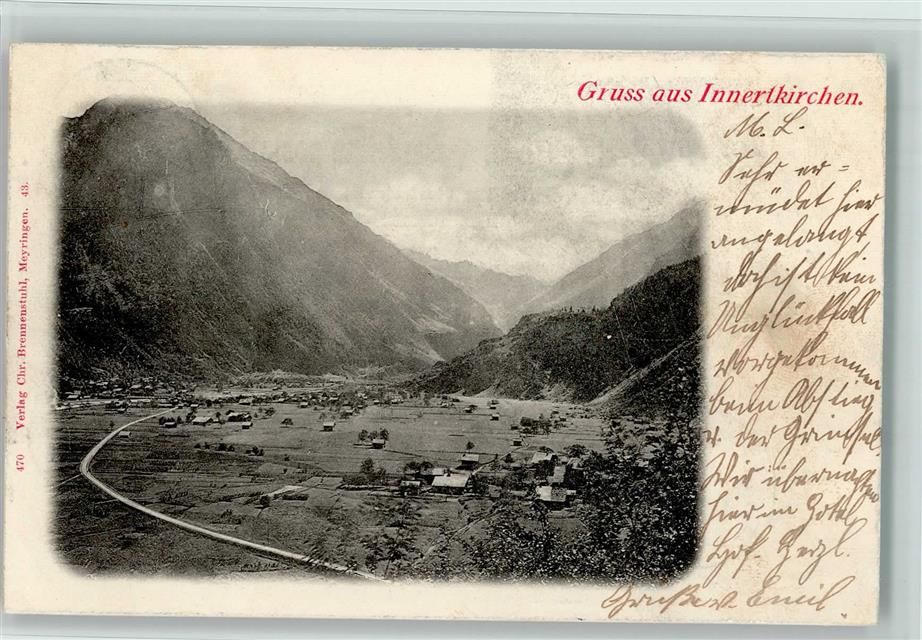 Gruss aus Innertkirchen.
M. L.
Sehr er=
müdet hier
angelangt
doch ist kein
Unglücksfall
vorgekommen
beim Abstieg
v. der Grimsel.
Wir übernachten
hier im Hotel
Hof. Herzl.
Grüsse v. Emil
470 Verlag Chr. Brennenstuhl, Meyringen. 43.